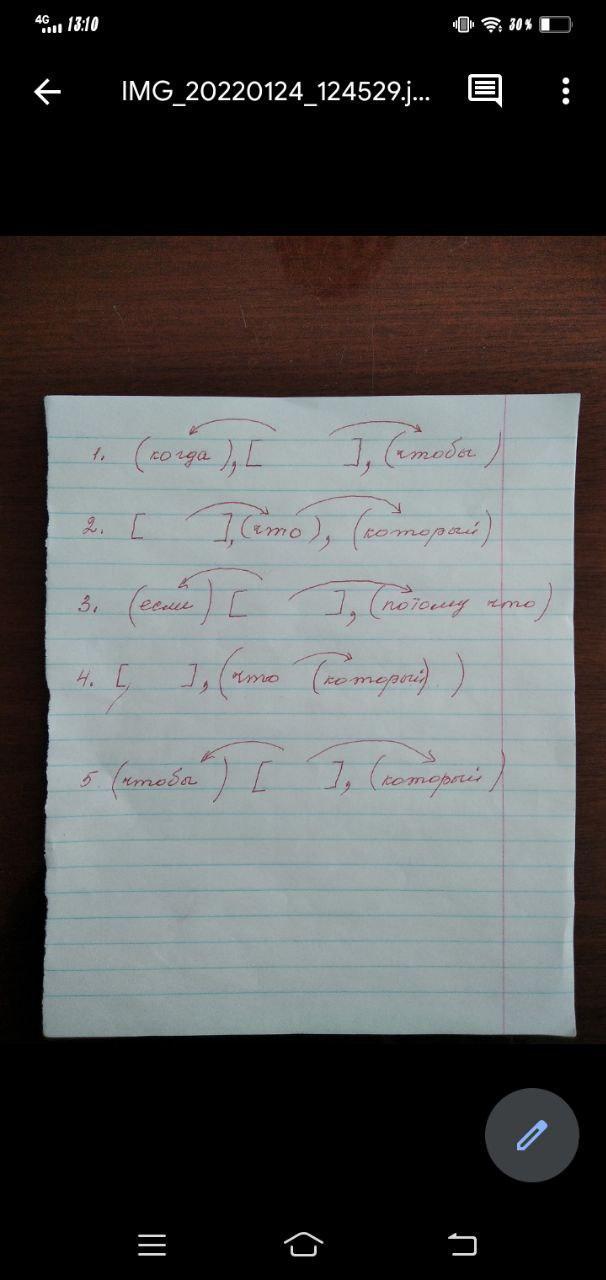 4G 13:10 30%
IMG_20220124_124529.j...
1. (когда), [ ], (чтобы)
2. [ ], (что), (который)
3. (если) [ ], (потому что)
4. [, ], (что (который) )
5. (чтобы) [ ], (который)